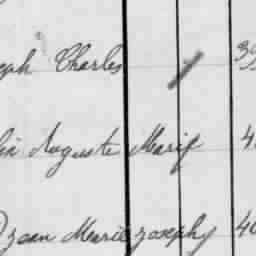 eph Charles 39
Auguste Marie 4
Jean Marie Joseph 40